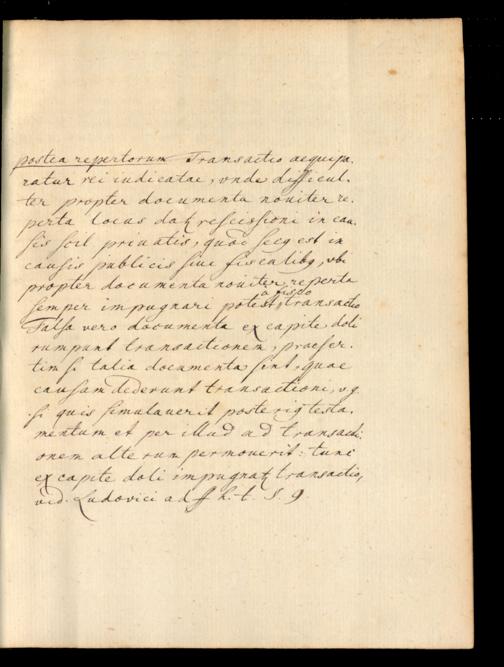 postea repertorum Transactio aequipa-
ratur rei iudicatae, unde difficul-
ter propter documenta noviter re-
perta locus datur rescissioni in cau-
sis scil privatis, quod secq est in
causis publicis sive fiscalibq, vbi
propter documenta noviter reperta
semper impugnari potest a fisco transactio
Falsa vero documenta ex capite doli
rumpunt transactionem, praeser-
tim si talia documenta sint, quae
causam dederunt transactioni, v.g.
si quis simulaverit posteriq testa-
mentum et per illud ad transacti-
onem alterum permoverit: tunc
ex capite doli impugnatur transactio,
vid. Ludovici ad ff h. t. §. 9.